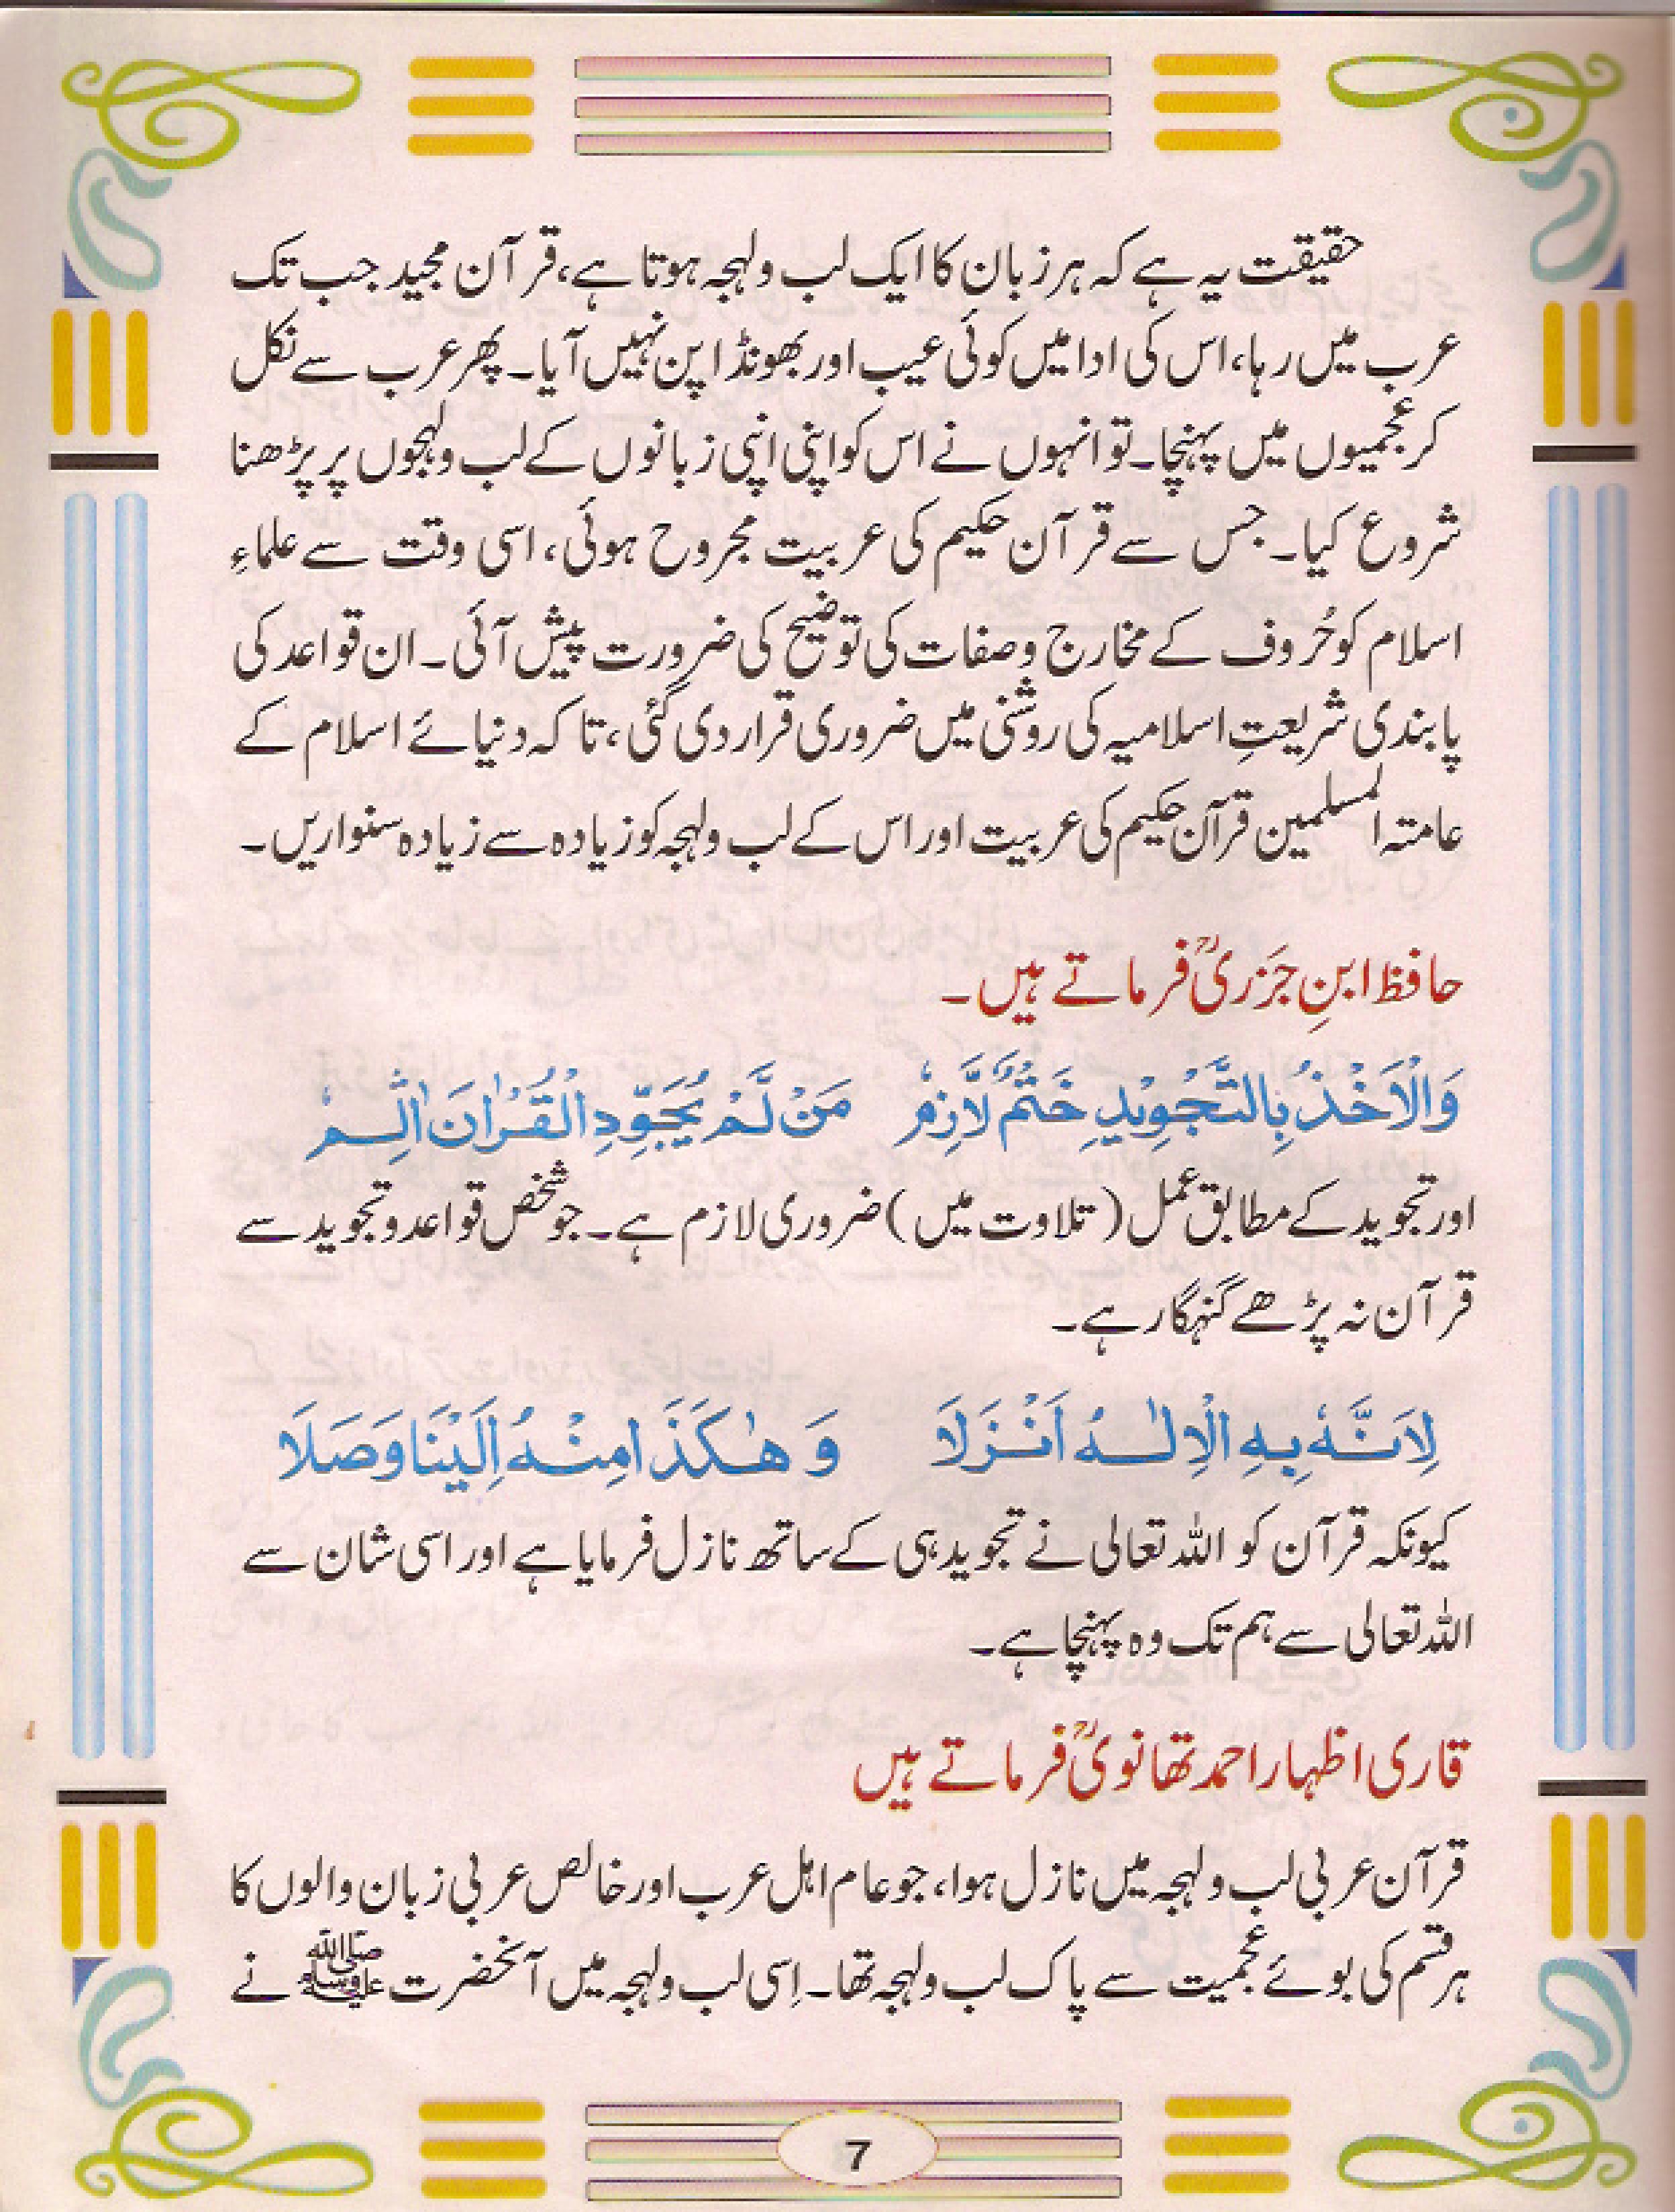 حقیقت یہ ہے کہ ہر زبان کا ایک لب ولہجہ ہوتا ہے، قرآن مجید جب تک
عرب میں رہا، اس کی ادا میں کوئی عیب اور بھونڈا پن نہیں آیا۔ پھر عرب سے نکل
کر عجمیوں میں پہنچا۔ تو انہوں نے اس کو اپنی اپنی زبانوں کے لب ولہجوں پر پڑھنا
شروع کیا۔ جس سے قرآن حکیم کی عربیت مجروح ہوئی، اسی وقت سے علماءِ
اسلام کو حُروف کے مخارج وصفات کی توضیح کی ضرورت پیش آئی۔ ان قواعد کی
پابندی شریعتِ اسلامیہ کی روشنی میں ضروری قرار دی گئی، تاکہ دنیائے اسلام کے
عامتہ المسلمین قرآن حکیم کی عربیت اور اس کے لب ولہجہ کو زیادہ سے زیادہ سنواریں۔
حافظ ابنِ جَزَریؒ فرماتے ہیں۔
وَالْاَخْذُ بِالتَّجْوِيْدِ خَتْمٌ لَّازِمٗ مَنْ لَّمْ يُجَوِّدِ الْقُرْاٰنَ اٰثِمٗ
اور تجوید کے مطابق عمل (تلاوت میں) ضروری لازم ہے۔ جو شخص قواعد و تجوید سے
قرآن نہ پڑھے گنہگار ہے۔
لِاَنَّهٗ بِهِ الْاِلٰهُ اَنْزَلَا وَهٰكَذَا مِنْهُ اِلَيْنَا وَصَلَا
کیونکہ قرآن کو اللہ تعالی نے تجوید ہی کے ساتھ نازل فرمایا ہے اور اسی شان سے
اللہ تعالی سے ہم تک وہ پہنچا ہے۔
قاری اظہار احمد تھانویؒ فرماتے ہیں
قرآن عربی لب ولہجہ میں نازل ہوا، جو عام اہل عرب اور خالص عربی زبان والوں کا
ہر قسم کی بوئے عجمیت سے پاک لب ولہجہ تھا۔ اِسی لب ولہجہ میں آنحضرت ﷺ نے
7